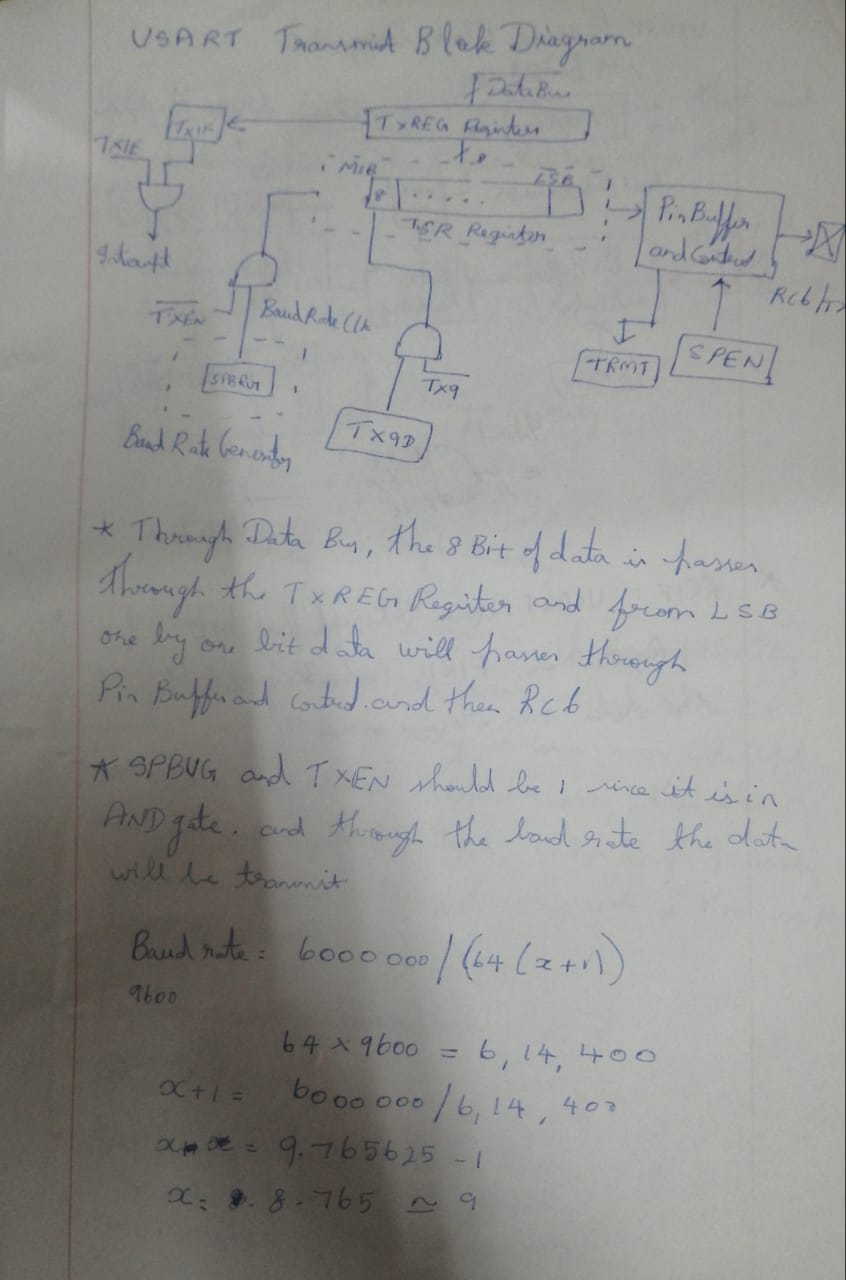 USART Transmit Block Diagram
Data Bus
TXIF
TXREG Register
TXIE
8
MSB
LSB
8 . . . . .
TSR Register
Pin Buffer
and Control
Interrupt
RC6/TX
TXEN
Baud Rate Clk
SPBRG
TX9
TRMT
SPEN
TX9D
Baud Rate Generator
* Through Data Bus, the 8 Bit of data is passes
through the TXREG Register and from LSB
one by one bit data will passes through
Pin Buffer and control. and then RC6
* SPBUG and TXEN should be 1 since it is in
AND gate. and through the baud rate the data
will be transmit
Baud rate = 6000 000/(64(x+1)
9600
64 x 9600 = 6,14,400
x+1 = 6000 000/6,14,400
x = 9.765625 -1
x = 8.765 ≃ 9